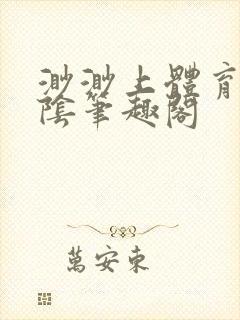 渺渺上體育
陰筆趣閣
萬安東